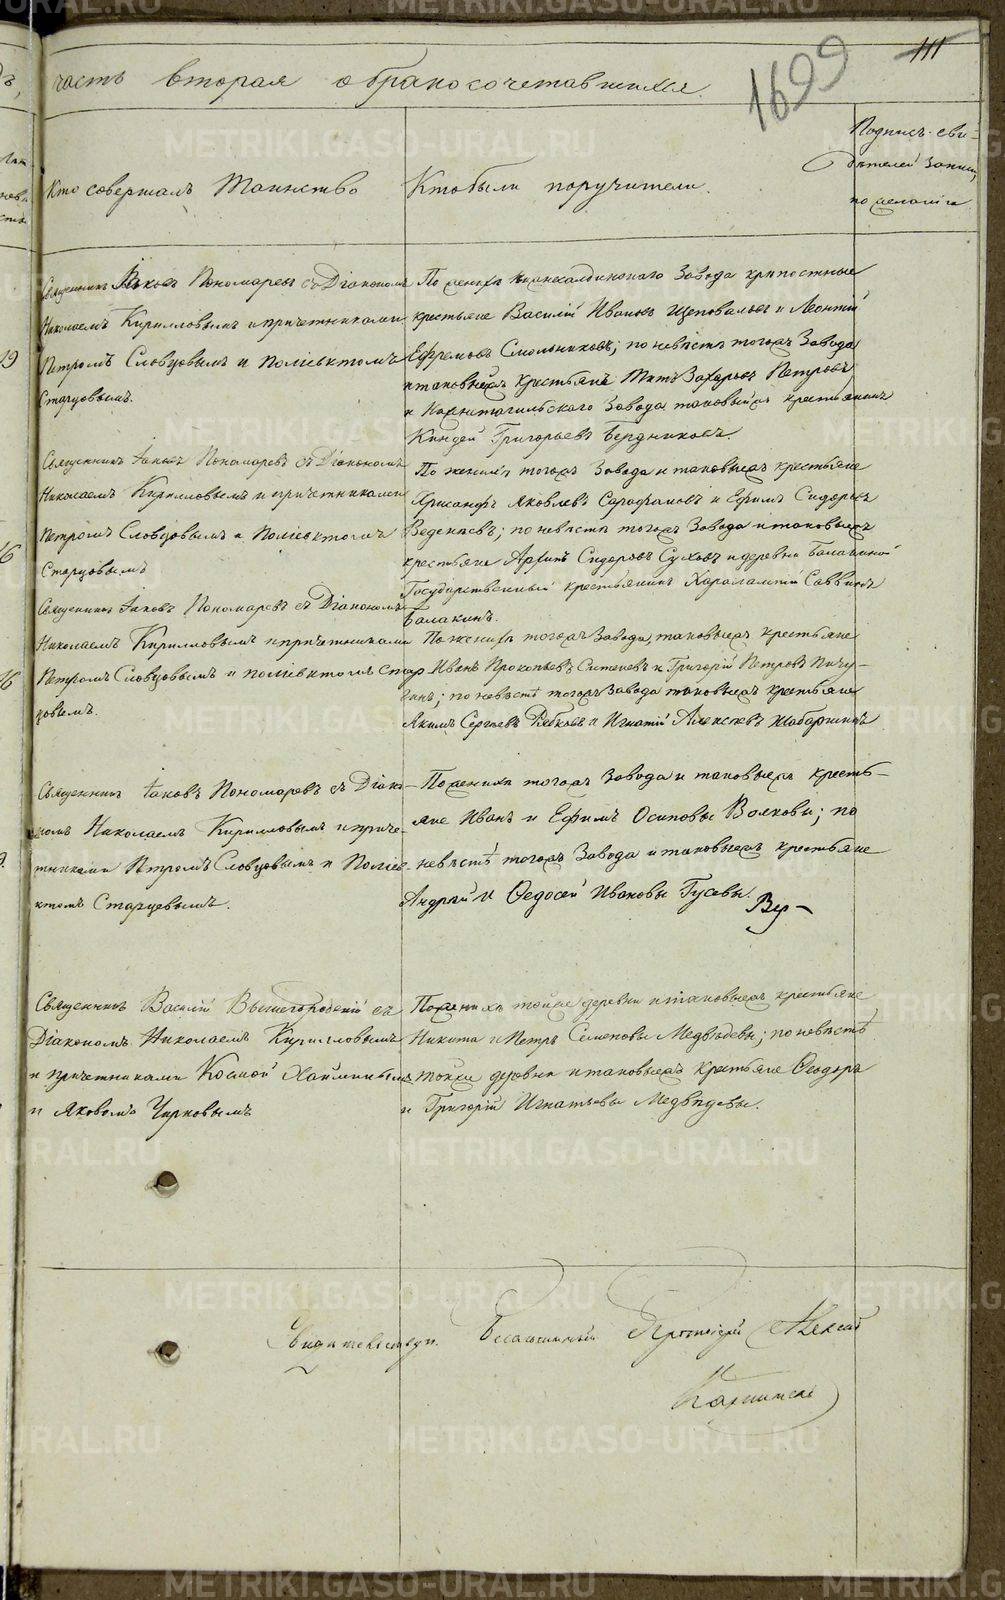 111
1699
часть вторая о бракосочетавшихся.
Кто совершалъ Таинство
Кто были поручители.
Подпись сви-
дѣтелей записи,
по желанію
Священникъ Іаковъ Пономаревъ съ Діакономъ
Николаемъ Кирилловымъ и причетниками
Петромъ Словцовымъ и Поліевктомъ
Старцовымъ.
По женихѣ крѣпостные
крестьяне Василій Ивановъ Щеповальевъ и Леонтій
Ефремовъ Смольниковъ; по невѣстѣ тогожъ Завода
и таковыйжъ крестьянъ Титъ Захаровъ Петровъ,
и Нижнетагильскаго Завода таковыйжъ крестьянинъ
Киндей Григорьевъ Бердниковъ.
Священникъ Іаковъ Пономаревъ съ Діакономъ
Николаемъ Кирилловымъ и причетниками
Петромъ Словцовымъ и Поліевктомъ
Старцовымъ
По женихѣ тогожъ Завода и таковыежъ крестьяне
Хрисанфъ Яковлевъ Сарафановъ и Ефимъ Сидоровъ
Веденѣевъ; по невѣстѣ тогожъ Завода и таковыежъ
крестьяне Архипъ Сидоровъ Суховъ и деревни Балакиной
Государственный крестьянинъ Харалампій Саввинъ
Балакинъ.
Священникъ Іаковъ Пономаревъ съ Діакономъ
Николаемъ Кирилловымъ и причетниками
Петромъ Словцовымъ и Поліевктомъ Стар
цовымъ.
По женихѣ тогожъ Завода, таковыежъ крестьяне
Иванъ Прокопьевъ Ситневъ и Григорій Петровъ Пичу-
гинъ; по невѣстѣ тогожъ Завода таковыежъ крестьяне
Акимъ Сергѣевъ Рябковъ и Игнатій Алексѣевъ Шабаршинъ
Священникъ Іаковъ Пономаревъ съ Діако-
номъ Николаемъ Кирилловымъ и приче-
тниками Петромъ Словцовымъ и Поліев-
ктомъ Старцевымъ.
По женихѣ тогожъ Завода и таковыежъ кресть-
яне Иванъ и Ефимъ Осиповы Волковы; по
невѣстѣ тогожъ Завода и таковыежъ крестьяне
Андрей и Ѳедосей Ивановы Гусевы.
Священникъ Василій Вышегородскій съ
Діакономъ Николаемъ Кирилловымъ
и причетниками Космой
и Яковомъ Чирковымъ
По женихѣ тойже деревни и таковыежъ крестьяне
Никита и Петръ Семеновы Медвѣдевы; по невѣстѣ
тойже деревни и таковыежъ крестьяне Ѳеодоръ
и Григорій Игнатьевы Медвѣдевы.
Свидѣтельствовалъ Благочинный Протоіерей Алексѣй
METRIKI.GASO-URAL.RU